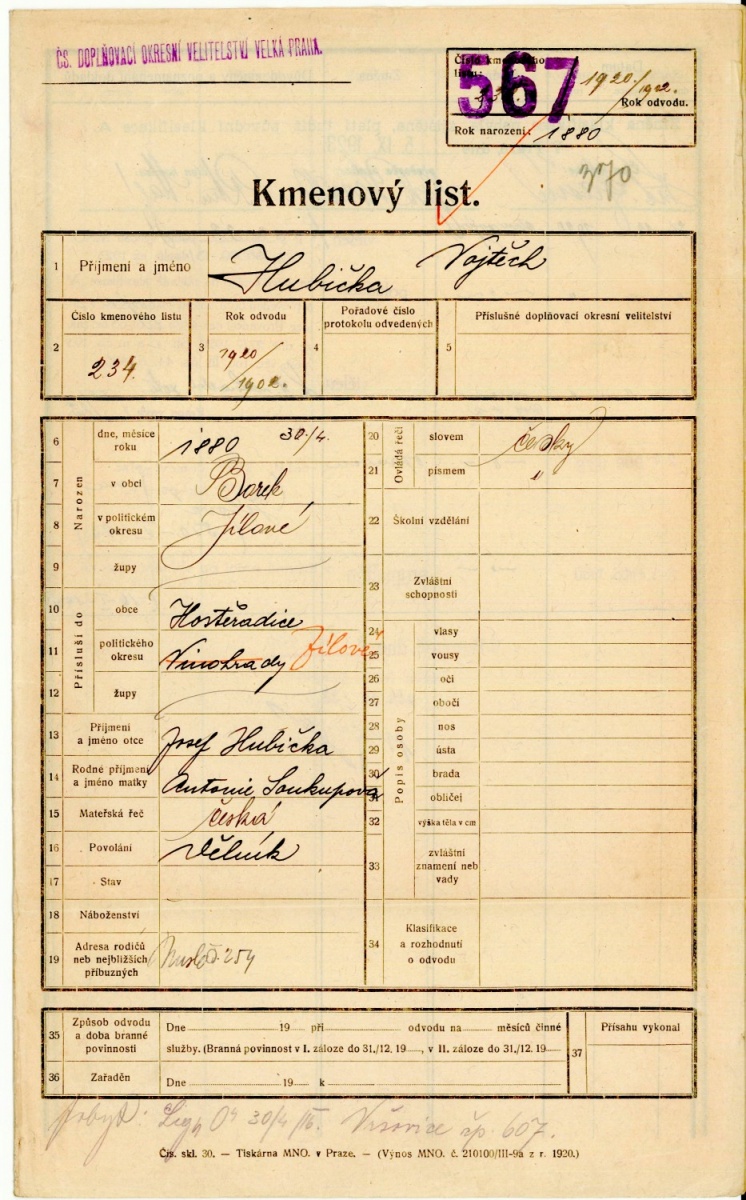 ČS. DOPLŇOVACÍ OKRESNÍ VELITELSTVÍ VELKÁ PRAHA.
Číslo kmenového listu:
567
1920/1902.
Rok odvodu.
Rok narození: 1880
370
Kmenový list.
1 Příjmení a jméno Hubička Vojtěch
2 Číslo kmenového listu 234.
3 Rok odvodu 1920/1902.
4 Pořadové číslo protokolu odvedených
5 Příslušné doplňovací okresní velitelství
Narozen
6 dne, měsíce roku 1880 30./4.
7 v obci Borek
8 v politickém okresu Jílové
9 župy
Přísluší do
10 obce Hostěradice
11 politického okresu Vinohrady Jílové
12 župy
13 Příjmení a jméno otce Josef Hubička
14 Rodné příjmení a jméno matky Antonie Soukupová
15 Mateřská řeč česká
16 Povolání dělník
17 Stav
18 Náboženství
19 Adresa rodičů neb nejbližších příbuzných 254
Ovládá řeči
20 slovem česky
21 písmem "
22 Školní vzdělání
23 Zvláštní schopnosti
Popis osoby
24 vlasy
25 vousy
26 oči
27 obočí
28 nos
29 ústa
30 brada
31 obličej
32 výška těla v cm
33 zvláštní znamení neb vady
34 Klasifikace a rozhodnutí o odvodu
35 Způsob odvodu a doba branné povinnosti
Dne 19 při odvodu na měsíců činné
služby. (Branná povinnost v I. záloze do 31./12. 19 , v II. záloze do 31./12. 19
36 Zařaděn Dne 19 k
37 Přísahu vykonal
pobyt: 30/4 Vršovice čp. 607.
Čís. skl. 30. — Tiskárna MNO. v Praze. — (Výnos MNO. č. 210100/III-9a z r. 1920.)